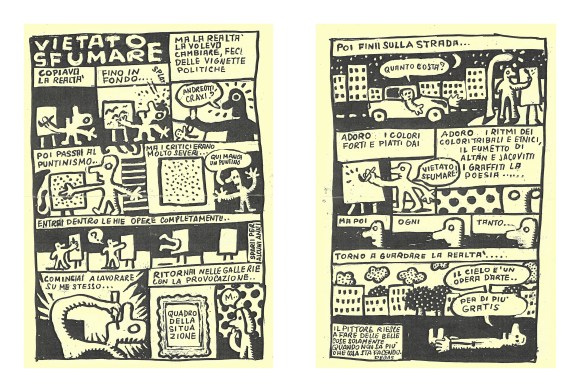 VIETATO
SFUMARE
MA LA REALTA'
LA VOLEVO
CAMBIARE, FECI
DELLE VIGNETTE
POLITICHE
COPIAVO
LA REALTA'
FINO IN
FONDO..
SPLAT
ANDREOTTI,
CRAXI?
POI PASSAI AL
PUNTINISMO...
MA I CRITICI ERANO
MOLTO SEVERI...
QUI MANCA
UN PUNTINO
ENTRAI DENTRO LE MIE OPERE COMPLETAMENTE..
?
SPARII PER
ALCUNI ANNI
COMINCIAI A LAVORARE
SU ME STESSO...
RITORNAI NELLE GALLERIE
CON LA PROVOCAZIONE..
QUADRO
DELLA
SITUA
ZIONE
M..
POI FINII SULLA STRADA...
QUANTO COSTA?
ADORO I COLORI
FORTI E PIATTI DAI
VIETATO
SFUMARE!
ADORO I RITMI DEI
COLORI TRIBALI E ETNICI,
IL FUMETTO DI
ALTAN E JACOVITTI
I GRAFFITI LA
POESIA......
MA POI
OGNI
TANTO...
TORNO A GUARDARE LA REALTA'.....
IL CIELO E' UN
OPERA D'ARTE..
PER DI PIU'
GRATIS
IL PITTORE RIESCE
A FARE DELLE BELLE
COSE SOLAMENTE
QUANDO NON SA PIU'
CHE COSA STA FACENDO.
DEGAS